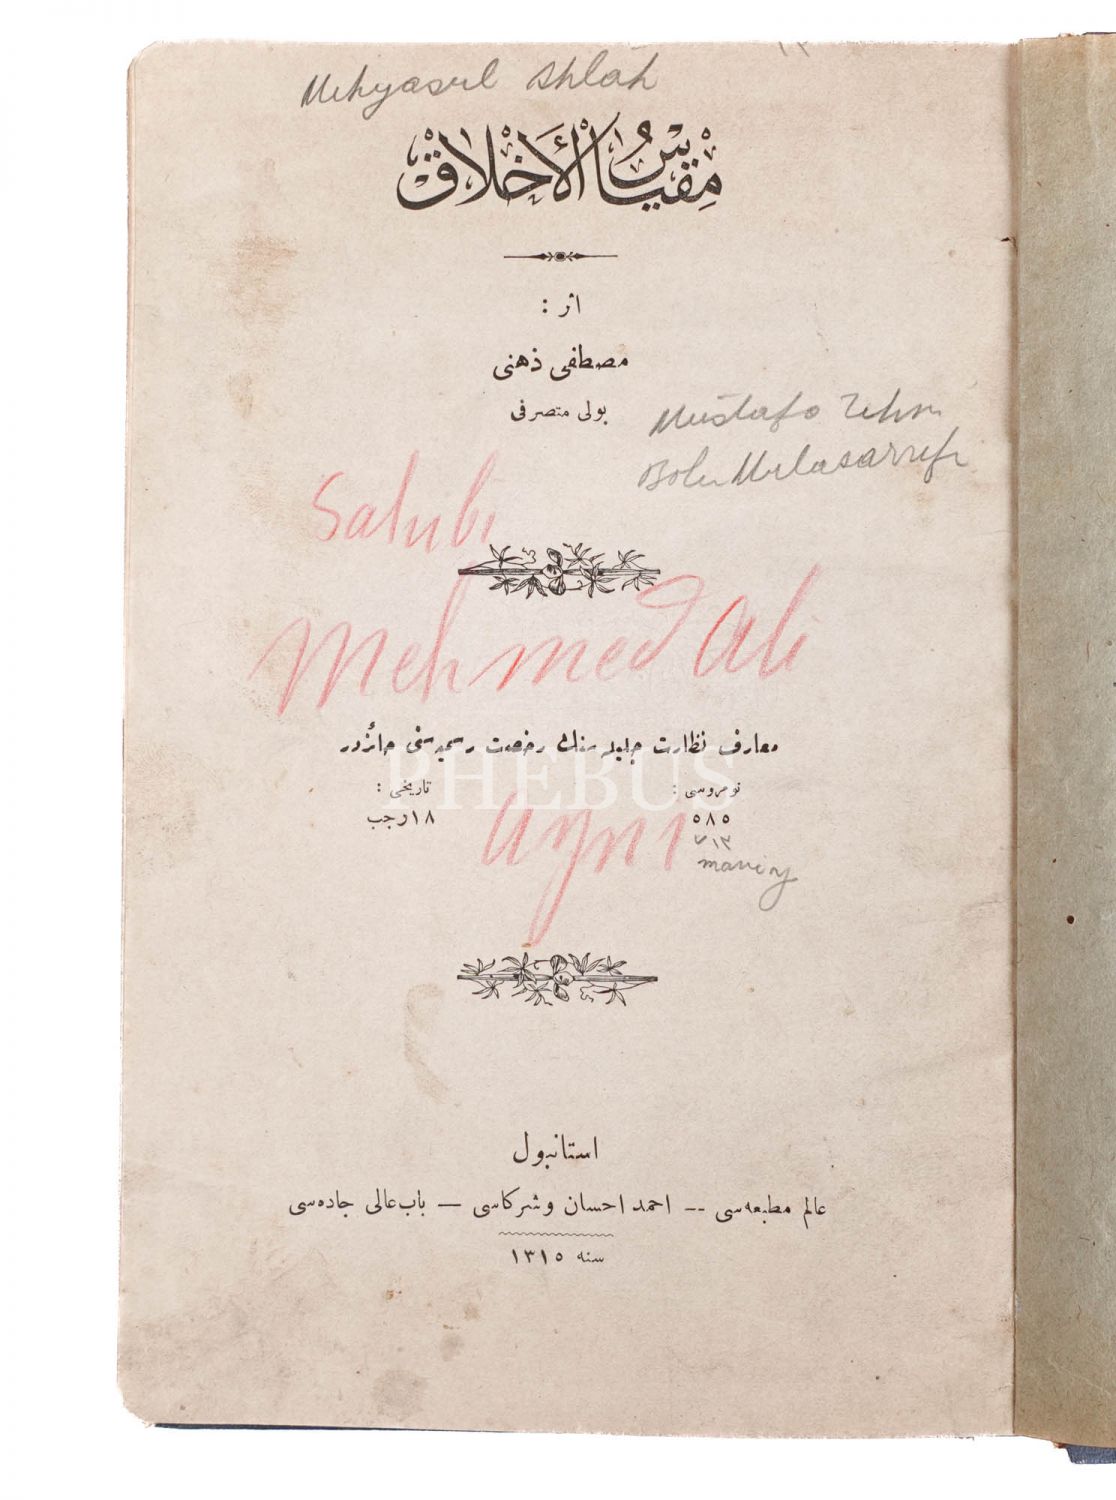 Mikyasul Ahlâk
مِقْيَاسُ الْأَخْلَاقْ
اثر :
مصطفى ذهنى
بولى متصرفى
Mustafa Zihni
Bolu Mutasarrıfı
Sahibi
Mehmed Ali
معارف نظارت جليله سنك رخصت رسميه سنى حائزدر
PHEBUS
نومروسى :
تاريخى :
٥٨٥
١٨ رجب
Ayni
استانبول
عالم مطبعه سى -- احمد احسان وشركاسى — باب عالى جاده سى
سنه ١٣١٥